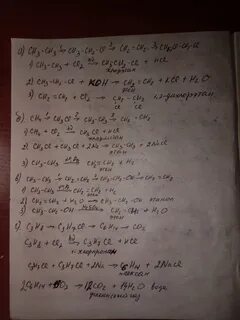 а) CH3-CH3 → CH3-CH2-Cl → CH2=CH2 →
1) CH3-CH3 + Cl2 → CH3-CH2-Cl + HCl
2) CH3-CH2-Cl + KOH → CH2=CH2 + KCl + H2O
этен
3) CH2=CH2 + Cl2 → CH2-CH2 1,2-дихлорэтан
Cl Cl
б) CH4 → CH3Cl → CH3-CH3 → CH2=CH2
1) CH4 + Cl2 → CH3Cl + HCl
2) CH3Cl + CH3Cl + 2Na → CH3-CH3 + 2NaCl
этан
3) CH3-CH3 → CH2=CH2 + H2
этен
в) CH3-CH3 → CH2=CH2 → CH3-CH2-OH → CH2=CH2
1) CH3-CH3 → CH2=CH2 + H2
2) CH2=CH2 + H2O → CH3-CH2-OH этанол
3) CH3-CH2-OH → CH2=CH2 + H2O
этен
г) C3H8 → C3H7Cl → C6H14 → CO2
C3H8 + Cl2 → C3H7Cl + HCl
C3H7Cl + C3H7Cl + 2Na → C6H14 + 2NaCl
гексан
2C6H14 + O2 → 12CO2 + 14H2O вода
углекислый газ